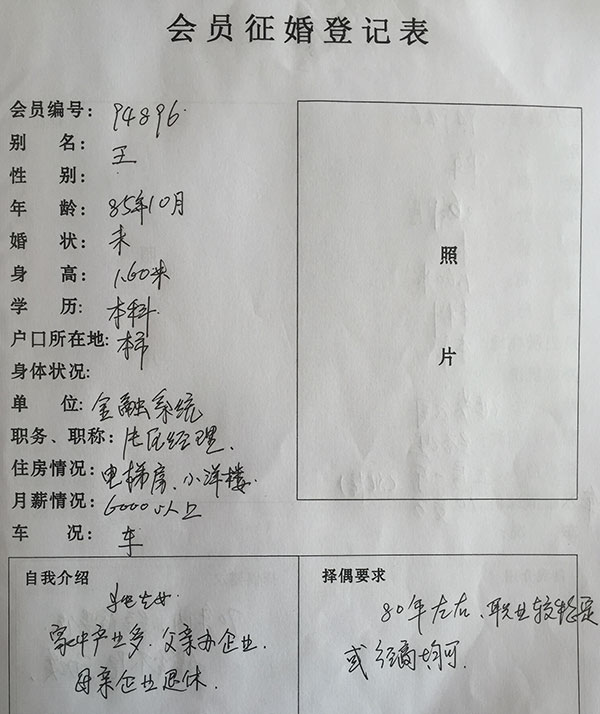 会员征婚登记表
会员编号: 94896
别 名: 王
性 别:
年 龄: 85年10月
婚 状: 未
身 高: 1.60米
学 历: 本科
户口所在地: 本市
身体状况:
单 位: 金融系统
职务、职称: 经理
住房情况: 电梯房、小洋楼
月薪情况: 6000以上
车 况: 车
照
片
自我介绍
家中产业多、父亲办企业、
母亲企业退休.
择偶要求
80年左右、职业较稳定
或经商均可.